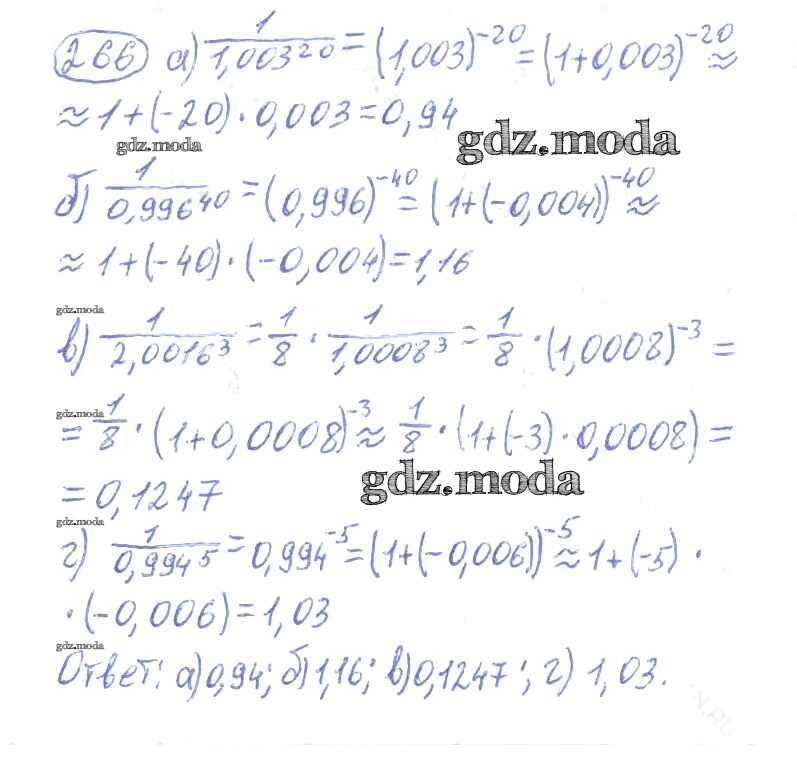 266 а) 1/1,003^20 = (1,003)^-20 = (1+0,003)^-20 ≈
≈ 1+(-20)·0,003=0,94
gdz.moda
gdz.moda
б) 1/0,996^40 = (0,996)^-40 = (1+(-0,004))^-40 ≈
≈ 1+(-40)·(-0,004)=1,16
gdz.moda
в) 1/2,0016^3 = 1/8 · 1/1,0008^3 = 1/8 ·(1,0008)^-3 =
gdz.moda
= 1/8 · (1+0,0008)^-3 ≈ 1/8 · (1+(-3)·0,0008) =
gdz.moda
= 0,1247
gdz.moda
г) 1/0,994^5 = 0,994^-5 = (1+(-0,006))^-5 ≈ 1+(-5) ·
·(-0,006)=1,03
gdz.moda
Ответ: а)0,94; б)1,16; в)0,1247; г) 1,03.